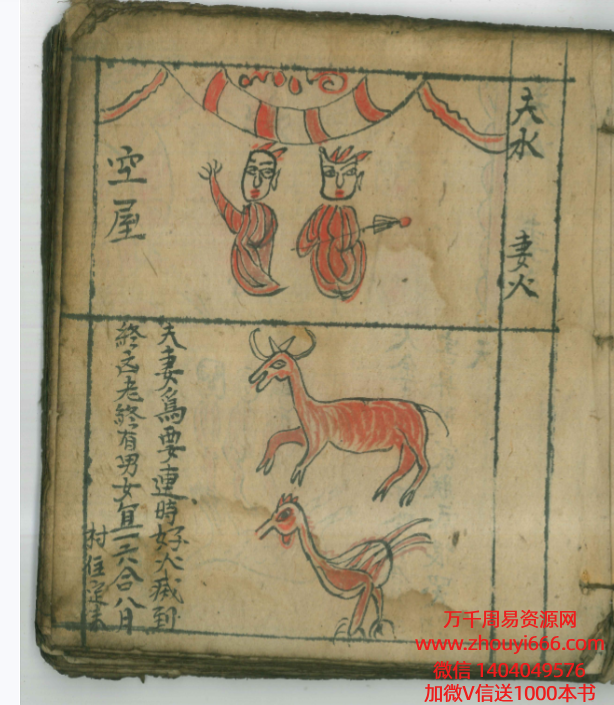 夫水
妻火
空屋
夫妻為要連時好火滅到
終立老終有男女
一六合八月
村住定
万千周易资源网
www.zhouyi666.com
微信 1404049576
加微V信送1000本书